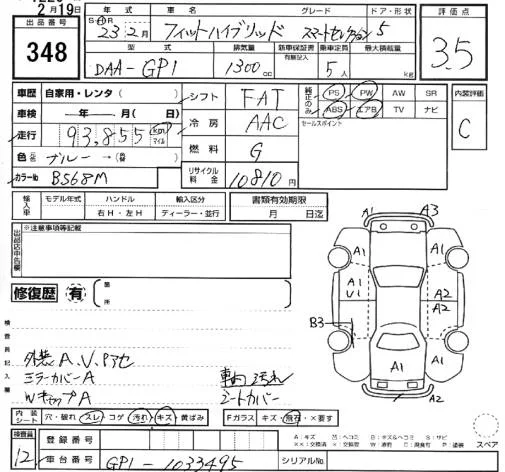 2月19日
出品番号
348
年式 車名 グレード ドア・形状
S・H・R 23年2月 フィットハイブリッド スマートセレクション 5
型式 排気量 新車保証書 有無記入 乗車定員 最大積載量
DAA-GP1 1300cc 5人 kg
評価点
3.5
車歴 自家用・レンタ( )
車検 年 月( 日)
走行 93,855 Km マイル
色(元色) ブルー→(替)
カラーNo B568M
シフト FAT
冷房 AAC
燃料 G
リサイクル料金 10810円
純正のみ PS PW AW SR
ABS エアB TV ナビ
セールスポイント
内装評価
C
輸入車 モデル年式 ハンドル 輸入区分
右H・左H ディーラー・並行
書類有効期限
月 日迄
出品店申告欄 ※注意事項等記載
修復歴 有 箇所
検査員記入欄
外装A.V.Pアセ
ミラーカバーA
WキャップA
車内汚れ
シートカバー
A1 A3
A1 A1 A1
A1 V1 A2 A2
B3
A1 A1 A1
A2
内装シート 穴・破れ スレ コゲ 汚れ キズ 黄ばみ
Fガラス キズ・飛石・×要す
検査員 12
登録番号
車台番号 GP1-1033495
シリアルNo.
A:キズ 凹:ヘコミ B:キズ&ヘコミ S:サビ
××:交換済 ×:交換要 W:波術 C:腐食町 P:塗装
スペア